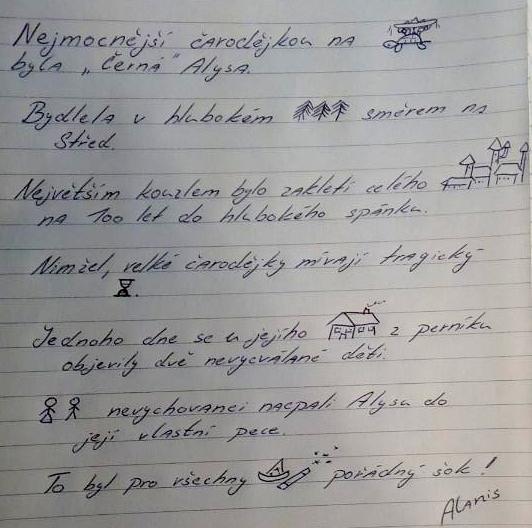 Nejmocnější čarodějkou na
byla „Černá" Alysa.
Bydlela v hlubokém směrem na
Střed.
Největším kouzlem bylo zakletí celého
na 100 let do hlubokého spánku.
Nimžel, velké čarodějky mívají tragický
.
Jednoho dne se u jejího z perníku
objevily dvě nevycválané děti.
nevychovanci nacpali Alysu do
její vlastní pece.
To byl pro všechny pořádný šok!
Alanis